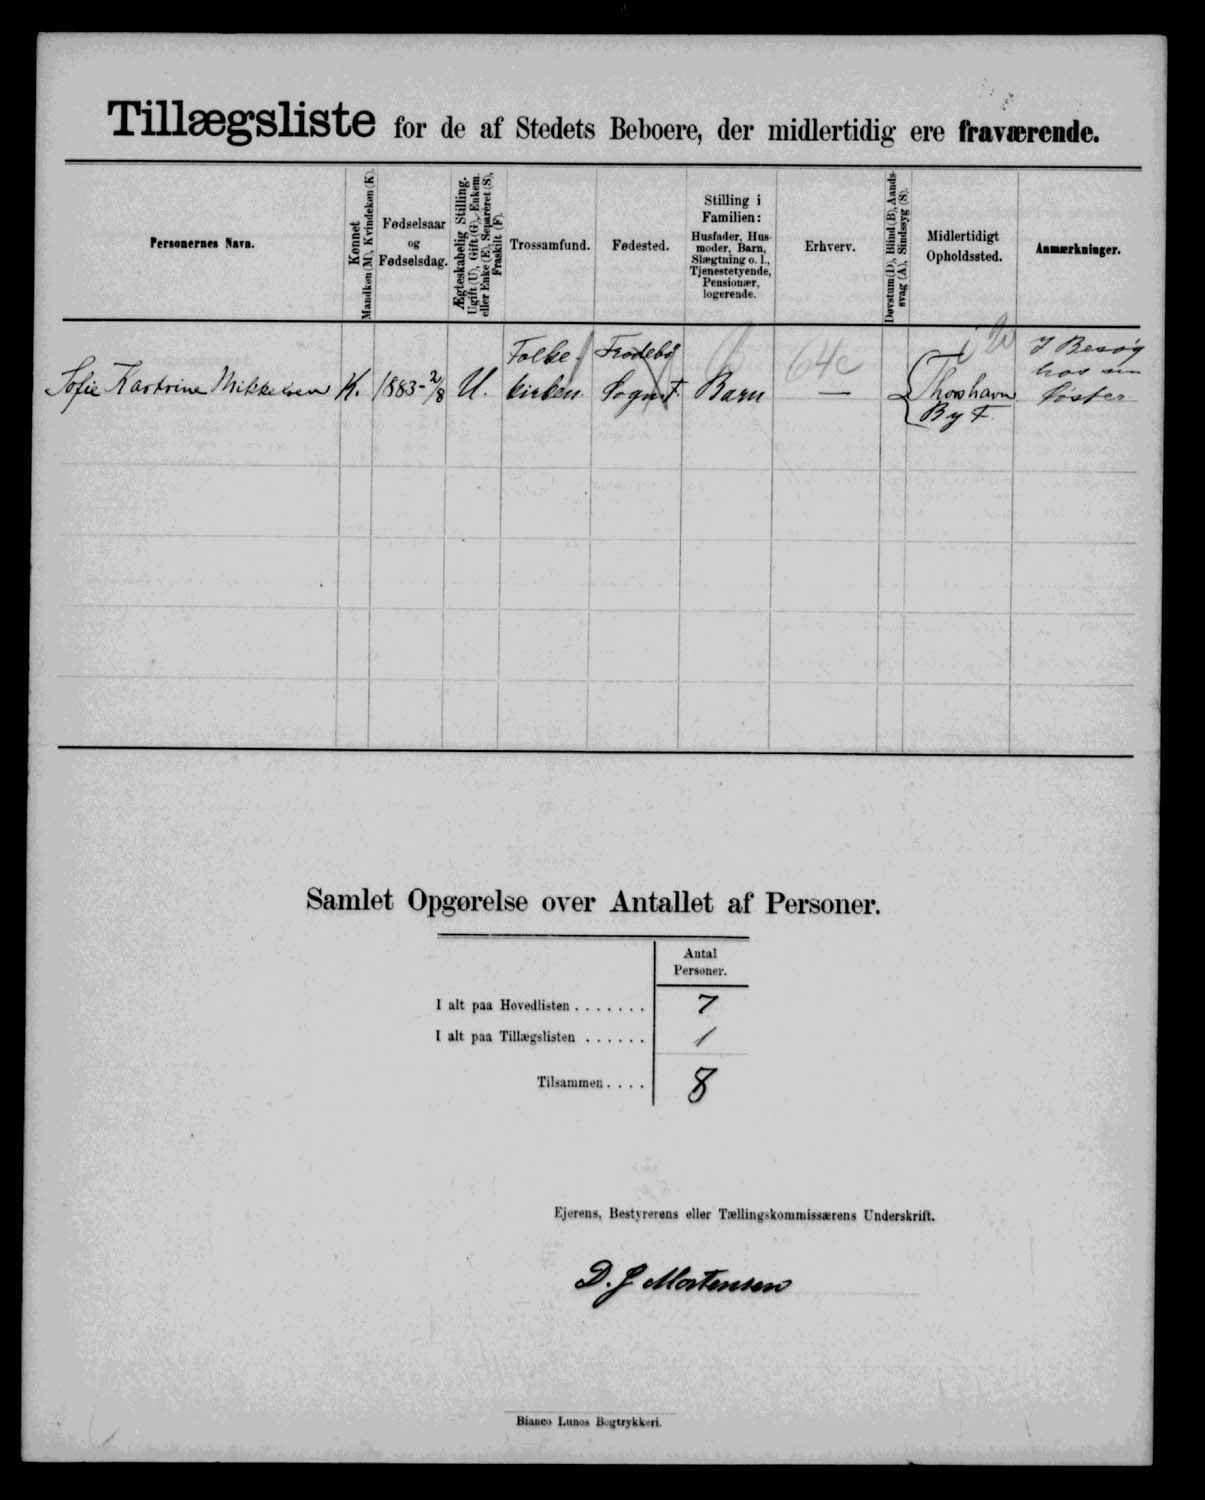 Tillægsliste for de af Stedets Beboere, der midlertidig ere fraværende.
Personernes Navn.
Kønnet
Mandkøn (M), Kvindekøn (K).
Fødselsaar
og
Fødselsdag.
Ægteskabelig Stilling.
Ugift (U), Gift (G), Enkem.
eller Enke (E), Separeret (S),
Fraskilt (F).
Trossamfund.
Fødested.
Stilling i
Familien:
Husfader, Hus-
moder, Barn,
Slægtning o. l.,
Tjenestetyende,
Pensionær,
logerende.
Erhverv.
Døvstum (D), Blind (B), Aands-
svag (A), Sindssyg (S).
Midlertidigt
Opholdssted.
Anmærkninger.
Sofie Kartrine Mikkelsen
K.
1883-2/8
U.
Folke-
kirken.
Frodebø
Sogn F.
Barn
64c
—
Thorshavn
By F.
I Besøg
hos sin
Søster
Samlet Opgørelse over Antallet af Personer.
Antal
Personer.
I alt paa Hovedlisten . . . . . . . 7
I alt paa Tillægslisten . . . . . . 1
Tilsammen . . . . 8
Ejerens, Bestyrerens eller Tællingskommissærens Underskrift.
D. J. Mortensen
Bianco Lunos Bogtrykkeri.